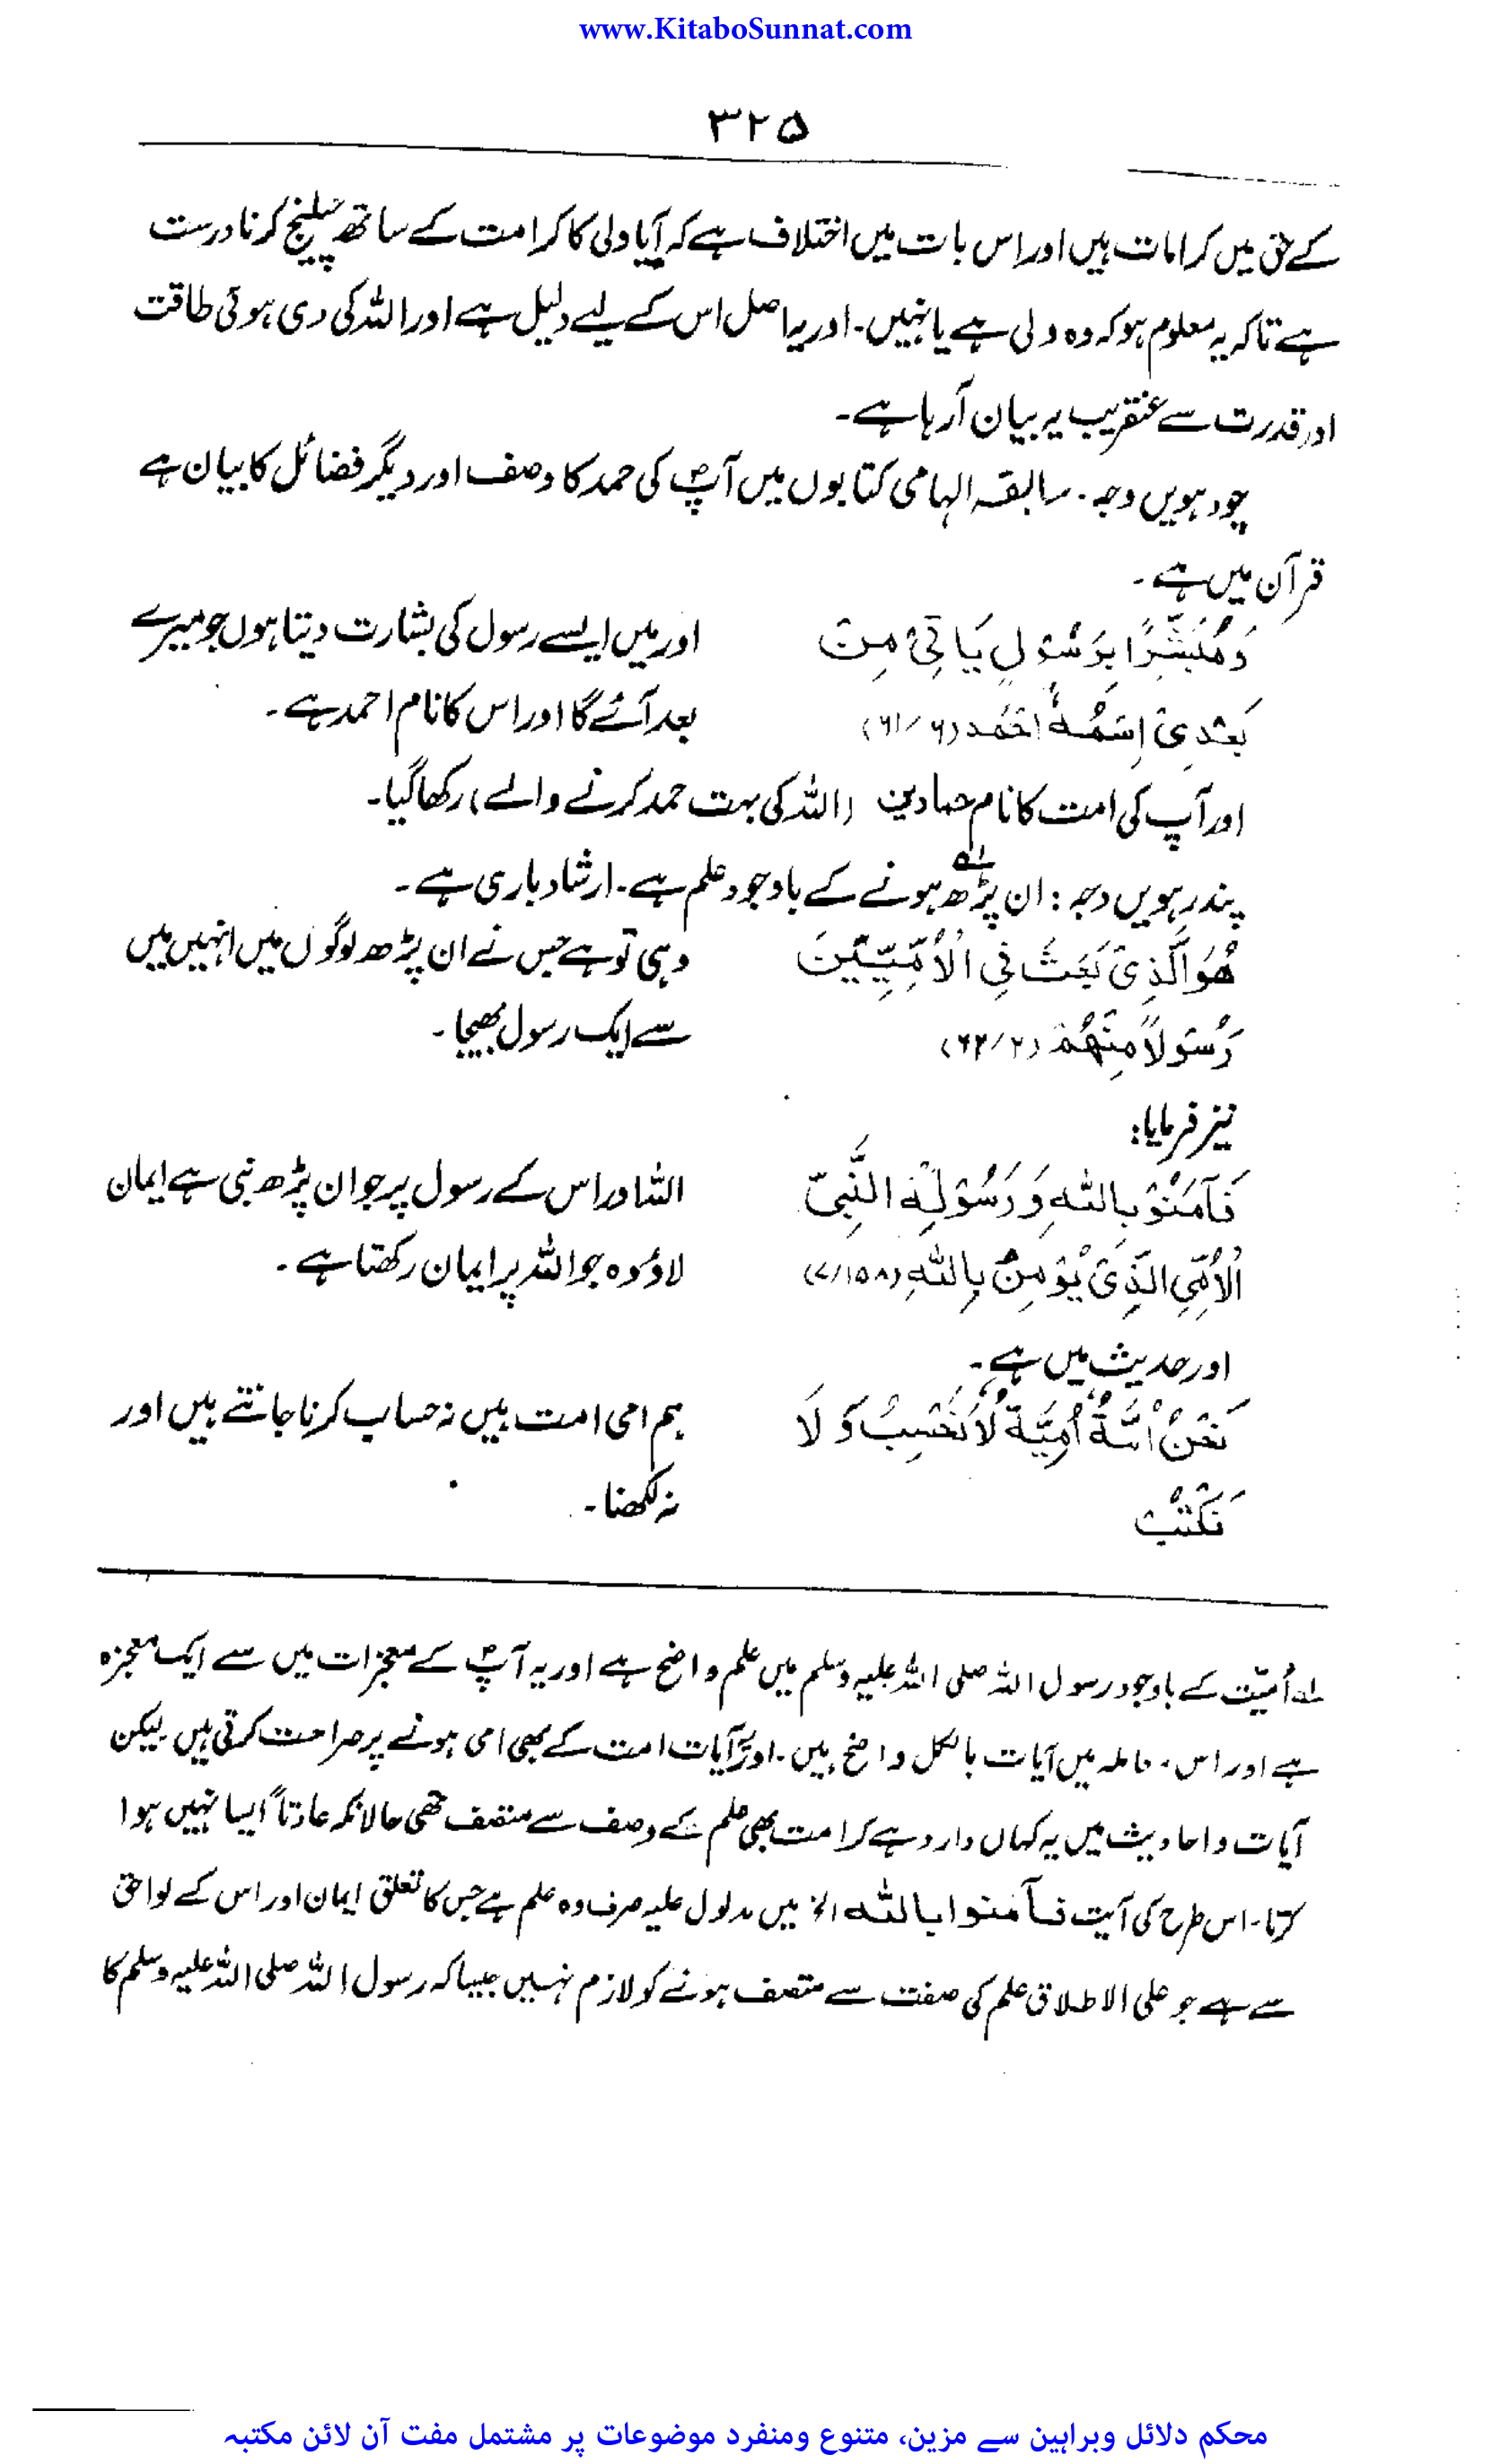 www.KitaboSunnat.com
۳۲۵
کے حق میں کرامات ہیں اور اس بات میں اختلاف ہے کہ آیا ولی کا کرامت کے ساتھ چیلنج کرنا درست
ہے تاکہ یہ معلوم ہو کہ وہ ولی ہے یا نہیں۔ اور یہ اصل اس کے لیے دلیل ہے اور اللہ کی دی ہوئی طاقت
اور قدرت سے عنقریب یہ بیان آرہا ہے۔
چودہویں وجہ۔ سابقہ الہامی کتابوں میں آپؐ کی حمد کا وصف اور دیگر فضائل کا بیان ہے
قرآن میں ہے۔
وَمُبَشِّرًا بِرَسُوْلٍ يَاتِیْ مِنْ
اور میں ایسے رسول کی بشارت دیتا ہوں جو میرے
بَعْدِیْ اِسْمُهٗ اَحْمَد (۶۱/۶)
بعد آئے گا اور اس کا نام احمد ہے۔
اور آپ کی امت کا نام حمادین (اللہ کی بہت حمد کرنے والے) رکھا گیا۔
پندرہویں وجہ: ان پڑھ ہونے کے باوجود علم ہے۔ ارشاد باری ہے۔
هُوَ الَّذِیْ بَعَثَ فِی الْاُمِّيِّيْنَ
وہی تو ہے جس نے ان پڑھ لوگوں میں انہیں میں
رَسُوْلًا مِنْهُمْ (۶۲/۲)
سے ایک رسول بھیجا۔
نیز فرمایا:
فَآمَنُوْ بِاللّٰهِ وَرَسُوْلِهِ النَّبِیِّ
اللہ اور اس کے رسول پر جو ان پڑھ نبی ہے ایمان
الْاُمِّیِ الَّذِیْ يُوْمِنُ بِاللّٰهِ (۷/۱۵۸)
لاؤ وہ جو اللہ پر ایمان رکھتا ہے۔
اور حدیث میں ہے۔
نَحْنُ اُمَّةٌ اُمِّيَّةٌ لَا نَحْسِبُ وَلَا
ہم امی امت ہیں نہ حساب کرنا جانتے ہیں اور
نَكْتُبُ
نہ لکھنا۔
لہ اُمیّت کے باوجود رسول اللہ صلی اللہ علیہ وسلم میں علم واضح ہے اور یہ آپؐ کے معجزات میں سے ایک معجزہ
ہے اور اس معاملہ میں آیات بالکل واضح ہیں۔ اور یہ آیات امت کے بھی امی ہونے پر صراحت کرتی ہیں لیکن
آیات و احادیث میں یہ کہاں وارد ہے کہ امت بھی علم کے وصف سے متصف تھی حالانکہ عادتاً ایسا نہیں ہوا
کرتا۔ اس طرح کی آیت فآمنوا باللہ الخ میں مدلول علیہ صرف وہ علم ہے جس کا تعلق ایمان اور اس کے لواحق
سے ہے جو علی الاطلاق علم کی صفت سے متصف ہونے کو لازم نہیں جیسا کہ رسول اللہ صلی اللہ علیہ وسلم کا
محکم دلائل وبراہین سے مزین، متنوع ومنفرد موضوعات پر مشتمل مفت آن لائن مکتبہ